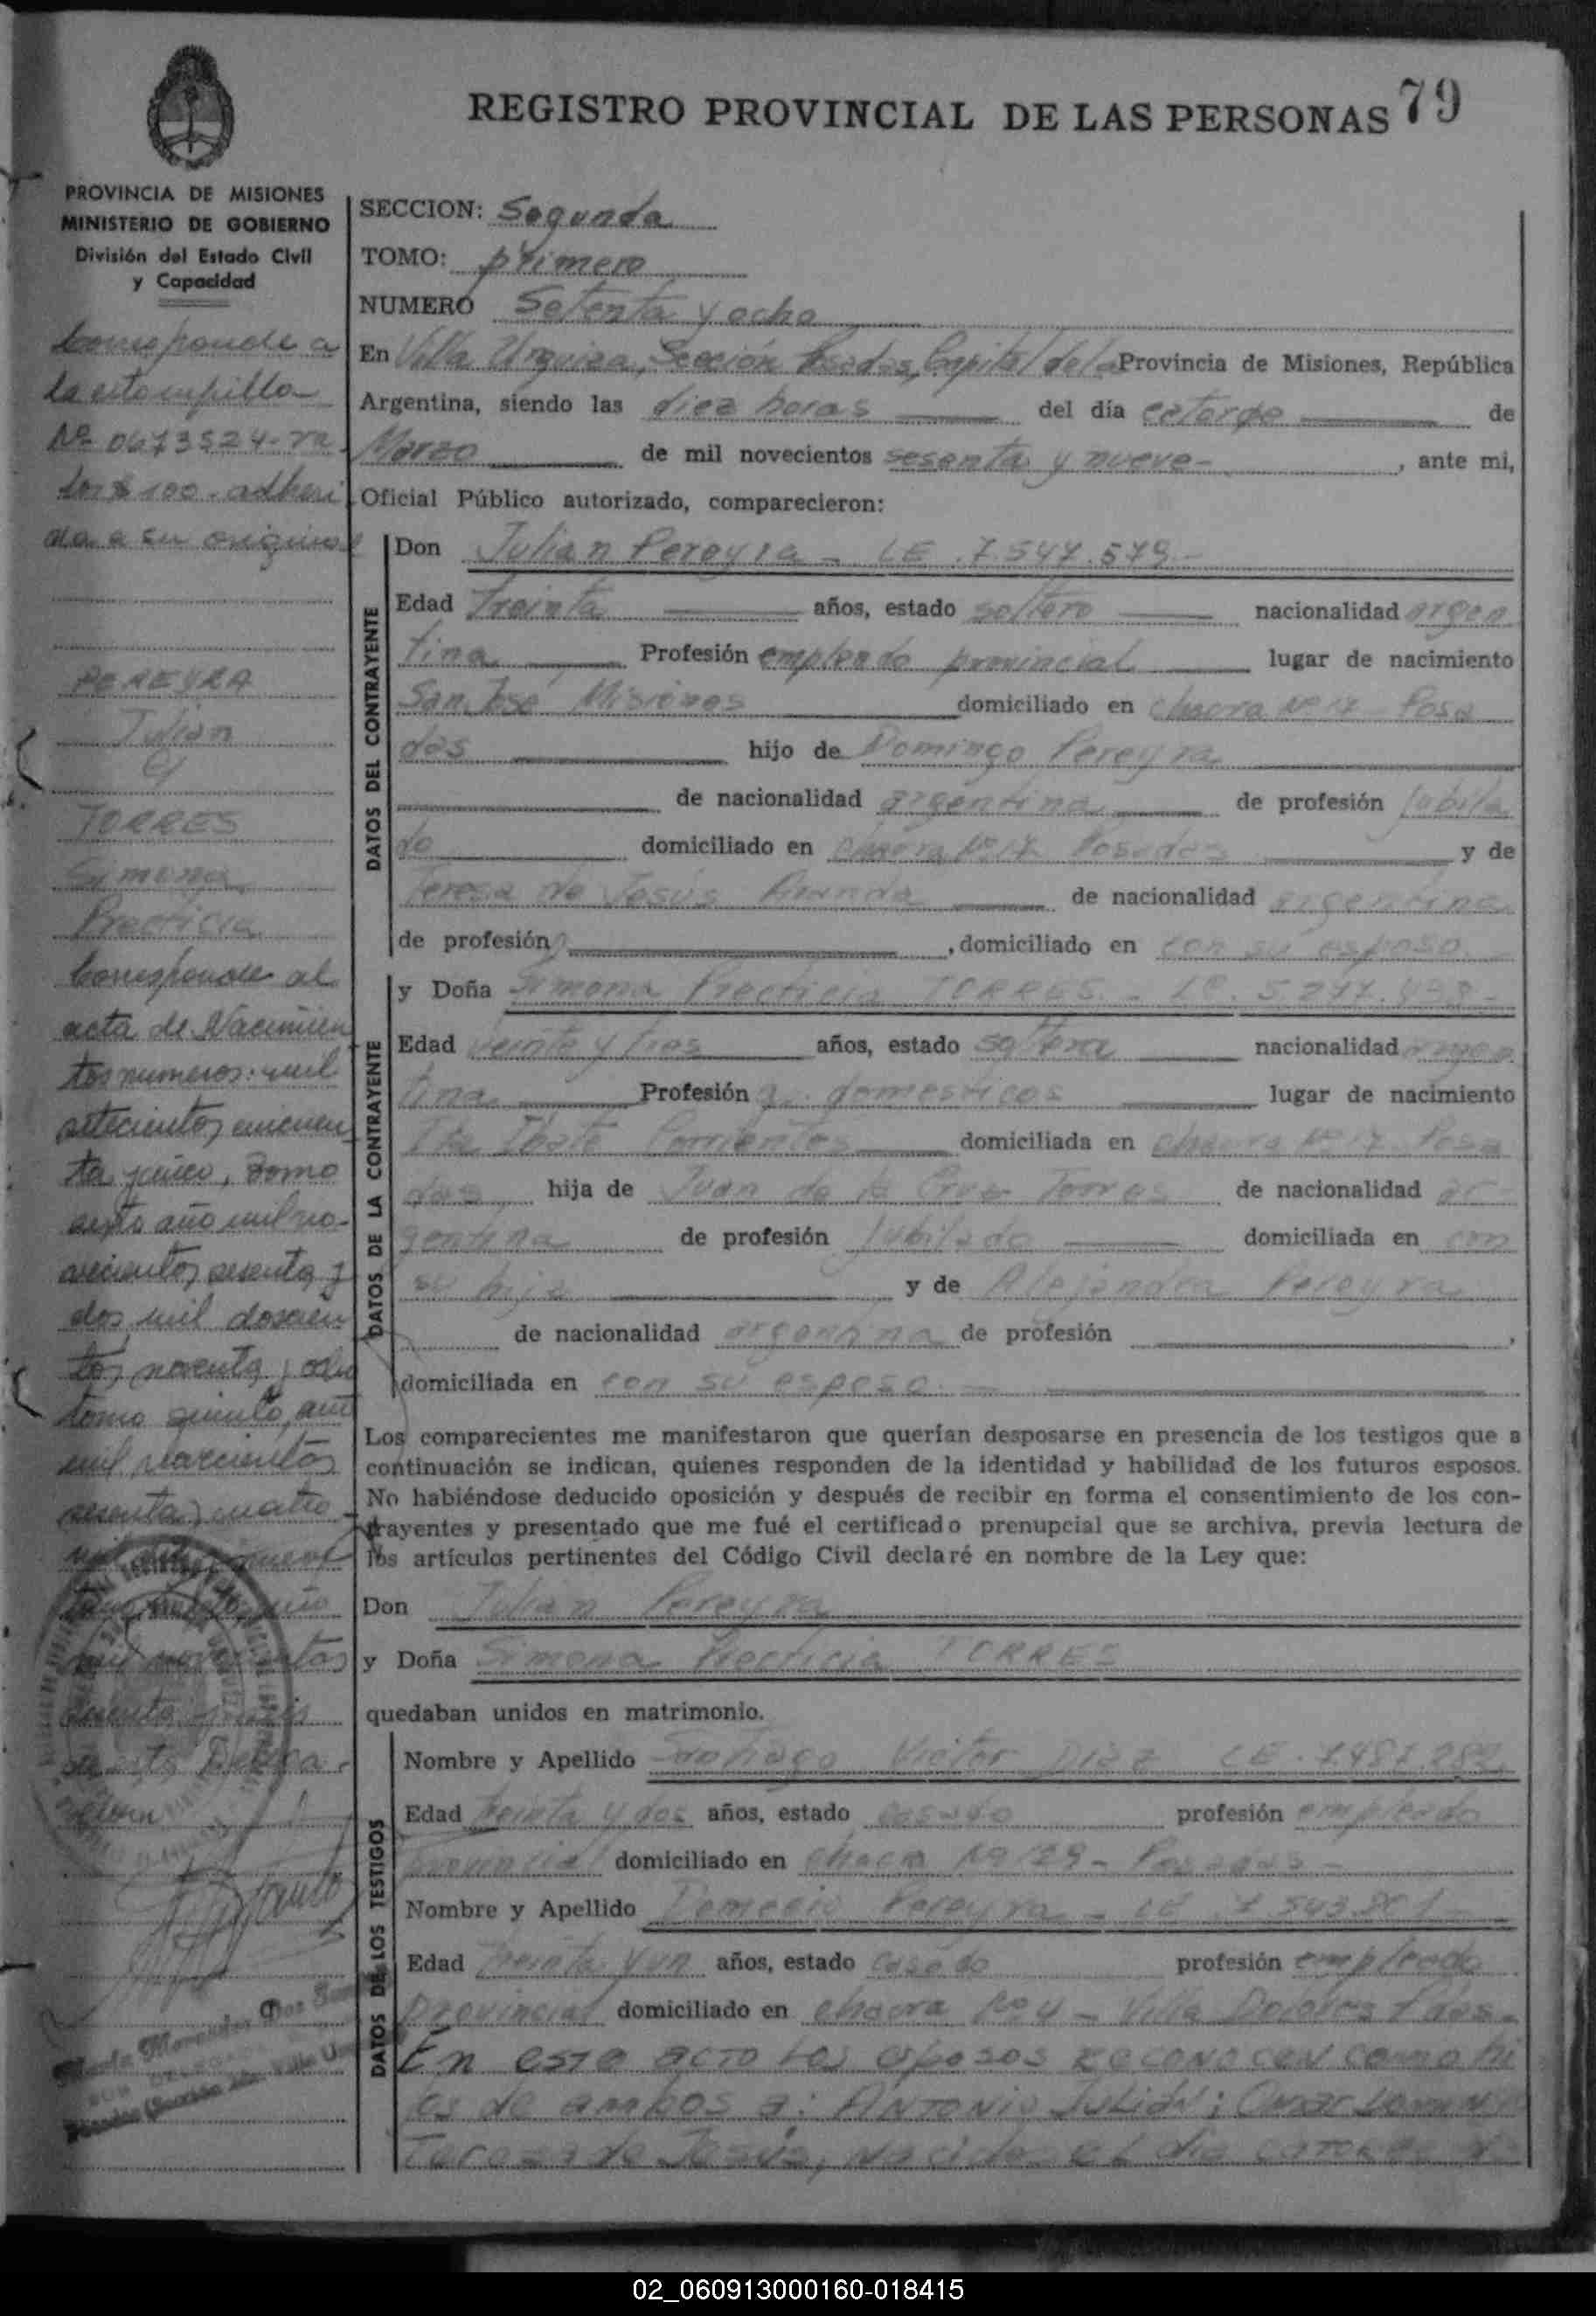 REGISTRO PROVINCIAL DE LAS PERSONAS 79
PROVINCIA DE MISIONES
MINISTERIO DE GOBIERNO
División del Estado Civil
y Capacidad
Corresponde a
la estampilla
Nº 0673524
por $ 100.- adheri
da a su original
PEREYRA
Julian
y
TORRES
Simona
Corresponde al
acta de Nacimien
tos numeros: mil
setecientos cincuen
ta y cinco, Tomo
sexto año mil no-
vecientos sesenta y
dos, mil doscien
tos noventa y ocho
tomo quinto, año
mil novecientos
sesenta y cuatro
mil novecientos
sesenta y seis
SECCION: Segunda
TOMO: primero
NUMERO Setenta y ocho
En Villa Urquiza, Sección Posadas, Capital de la Provincia de Misiones, República
Argentina, siendo las diez horas del día catorce de
Marzo de mil novecientos sesenta y nueve-, ante mi,
Oficial Público autorizado, comparecieron:
DATOS DEL CONTRAYENTE
Don Julian Pereyra - LE. 7.547.579.-
Edad Treinta años, estado soltero nacionalidad argen
tina Profesión empleado provincial lugar de nacimiento
San José Misiones domiciliado en chacra Nº 17 Posa
das hijo de Domingo Pereyra
de nacionalidad argentina de profesión Jubila
do domiciliado en chacra Nº 17 Posadas y de
Teresa de Jesús de nacionalidad argentina
de profesión , domiciliado en con su esposo.
DATOS DE LA CONTRAYENTE
y Doña Simona TORRES.-
Edad veinte y tres años, estado soltera nacionalidad argen
tina Profesión q. domesticos lugar de nacimiento
Ibaté Corrientes domiciliada en chacra Nº 17 Posa
das hija de Juan de la Cruz Torres de nacionalidad ar
gentina de profesión Jubilado domiciliada en con
su hija y de Alejandra Pereyra
de nacionalidad argentina de profesión ,
domiciliada en con su esposo.-
Los comparecientes me manifestaron que querían desposarse en presencia de los testigos que a
continuación se indican, quienes responden de la identidad y habilidad de los futuros esposos.
No habiéndose deducido oposición y después de recibir en forma el consentimiento de los con-
trayentes y presentado que me fué el certificado prenupcial que se archiva, previa lectura de
los artículos pertinentes del Código Civil declaré en nombre de la Ley que:
Don Julian Pereyra
y Doña Simona TORRES
quedaban unidos en matrimonio.
DATOS DE LOS TESTIGOS
Nombre y Apellido Santiago Victor Diaz LE.
Edad treinta y dos años, estado casado profesión empleado
provincial domiciliado en chacra Nº 129 - Posadas -
Nombre y Apellido Pereyra -
Edad treinta y un años, estado casado profesión empleado
provincial domiciliado en chacra Nº 4 - Villa Dolores
En este acto los esposos reconocen como hi
jos de ambos a: ANTONIO JULIÁN; Omar
Teresa de Jesús, nacidos el día catorce
02_060913000160-018415